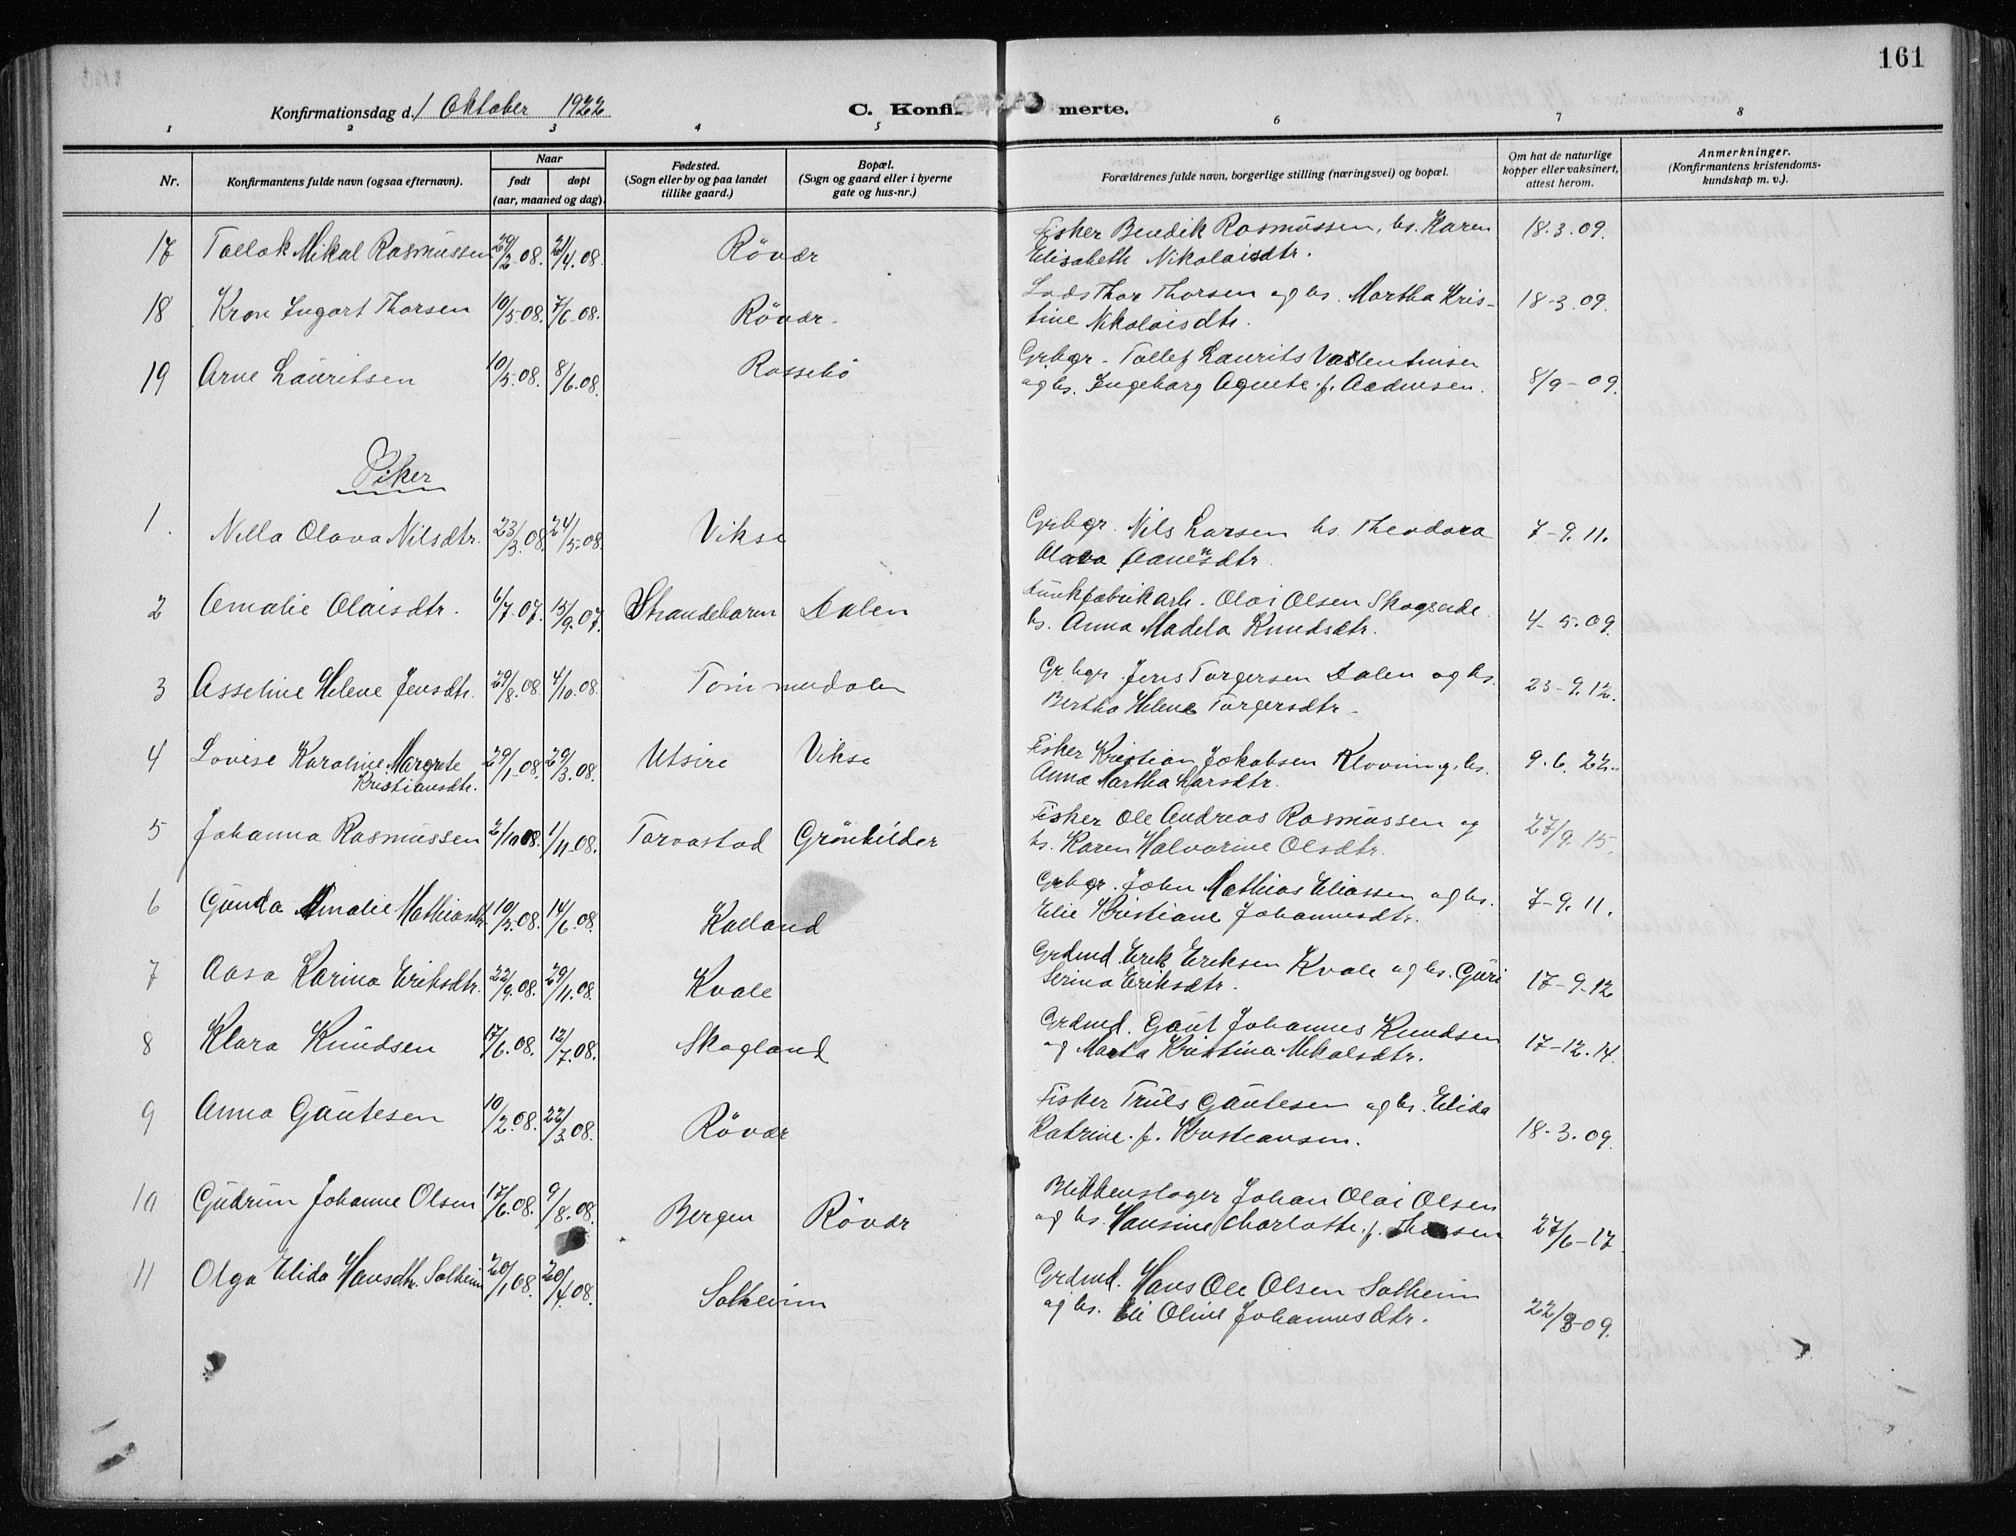 161
Konfirmationsdag d. 1 Oktober 1922
C. Konfirmerte.
1 2 3 4 5 6 7 8
Nr. Konfirmantens fulde navn (ogsaa efternavn). Naar født døpt (aar, maaned og dag). Fødested. (Sogn eller by og paa landet tillike gaard.) Bopæl. (Sogn og gaard eller i byerne gate og hus-nr.) Forældrenes fulde navn, borgerlige stilling (næringsvei) og bopæl. Om hat de naturlige kopper eller vaksinert, attest herom. Anmerkninger. (Konfirmantens kristendoms-kundskap m. v.).
17 Tollak Mikal Rasmussen 29/2-08. 21/4.08. Rövær Fisker Bendik Rasmussen, hs. Karen 18.3.09.
Elisabeth Nikolaisdtr.
18 Kron Ingart Thorsen 10/5-08. 7/6-08. Rövær. Lods Thor Thorsen og hs. Martha Kris- 18-3.09.
tine Nikolaisdtr.
19 Arne Lauritsen 10/5-08. 8/6.08. Rossebö Grbgr. Tollef Laurits Valentinsen
og hs. Ingeborg Agnete f. Aadnesen. 8/9-09.
Piker
1. Nella Olava Nilsdtr. 23/3.08. 24/5-08. Vikse Grbgr. Nils Larsen hs. Theodora 7-9.11.
Olava Aanensdtr.
2 Amalie Olaisdtr. 6/7-07. 15/9.07. Strandebarm Dalen Zinkfabrikarb. Olai Olsen Skogseide
hs. Anna Madela Knudsdtr. 4-5.09.
3 Asseline Helene Jensdtr. 29/8.08. 4/10.08. Tömmerdalen Grbgr. Jens Torgersen Dalen og hs. 23-9.12.
Bertha Helene Torgersdtr.
4 Lovise Karoline Margrete 29/1-08. 29/3.08. Utsire Vikse Fisker Kristian Jakobsen Klovning, hs. 9.6.22.
Kristiansdtr. Anna Martha Larsdtr.
5 Johanna Rasmussen 2/10 08. 1/11-08. Torvastad Grönhilder Fisker Ole Andreas Rasmussen og 27/9.15.
hs. Karen Halvorine Olsdtr.
6 Gunda Amalie Mathiasdtr. 19/3.08. 14/6.08. Kalland Grbgr. John Mathias Eliassen og hs. 7-9.11.
Elie Kristiane Johannesdtr.
7 Aasa Karina Eriksdtr. 22/9.08. 29/11.08. Kvale Grdmd. Erik Eriksen Kvale og hs. Guri 17-9-12
Serina Eriksdtr.
8 Klara Knudsen 17/6.08. 12/7.08. Skogland Grdmd. Gaut Johannes Knudsen 17-12.14.
og Marta Kristina Mikalsdtr.
9 Anna Gautesen 10/2.08. 22/3.08. Rövær Fisker Truls Gautesen og hs. Elida
Katrine f. Kristiansen. 18-3.09.
10 Gudrun Johanne Olsen 17/6.08. 9/8.08. Bergen Rövær Blikkenslager Johan Olai Olsen
og hs. Hansine Charlotte f. 27/6-17.
11 Olga Elida Hansdtr. Solheim 20/1 08. 20/4.08. Solheim Grdmd. Hans Ole Olsen Solheim
og hs. Eli Oline Johannesdtr. 22/3-09.